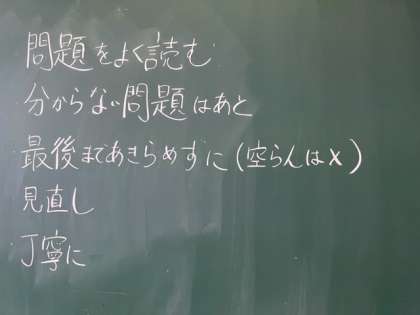 問題をよく読む
分からない問題はあと
最後まであきらめずに(空らんは×)
見直し
丁寧に